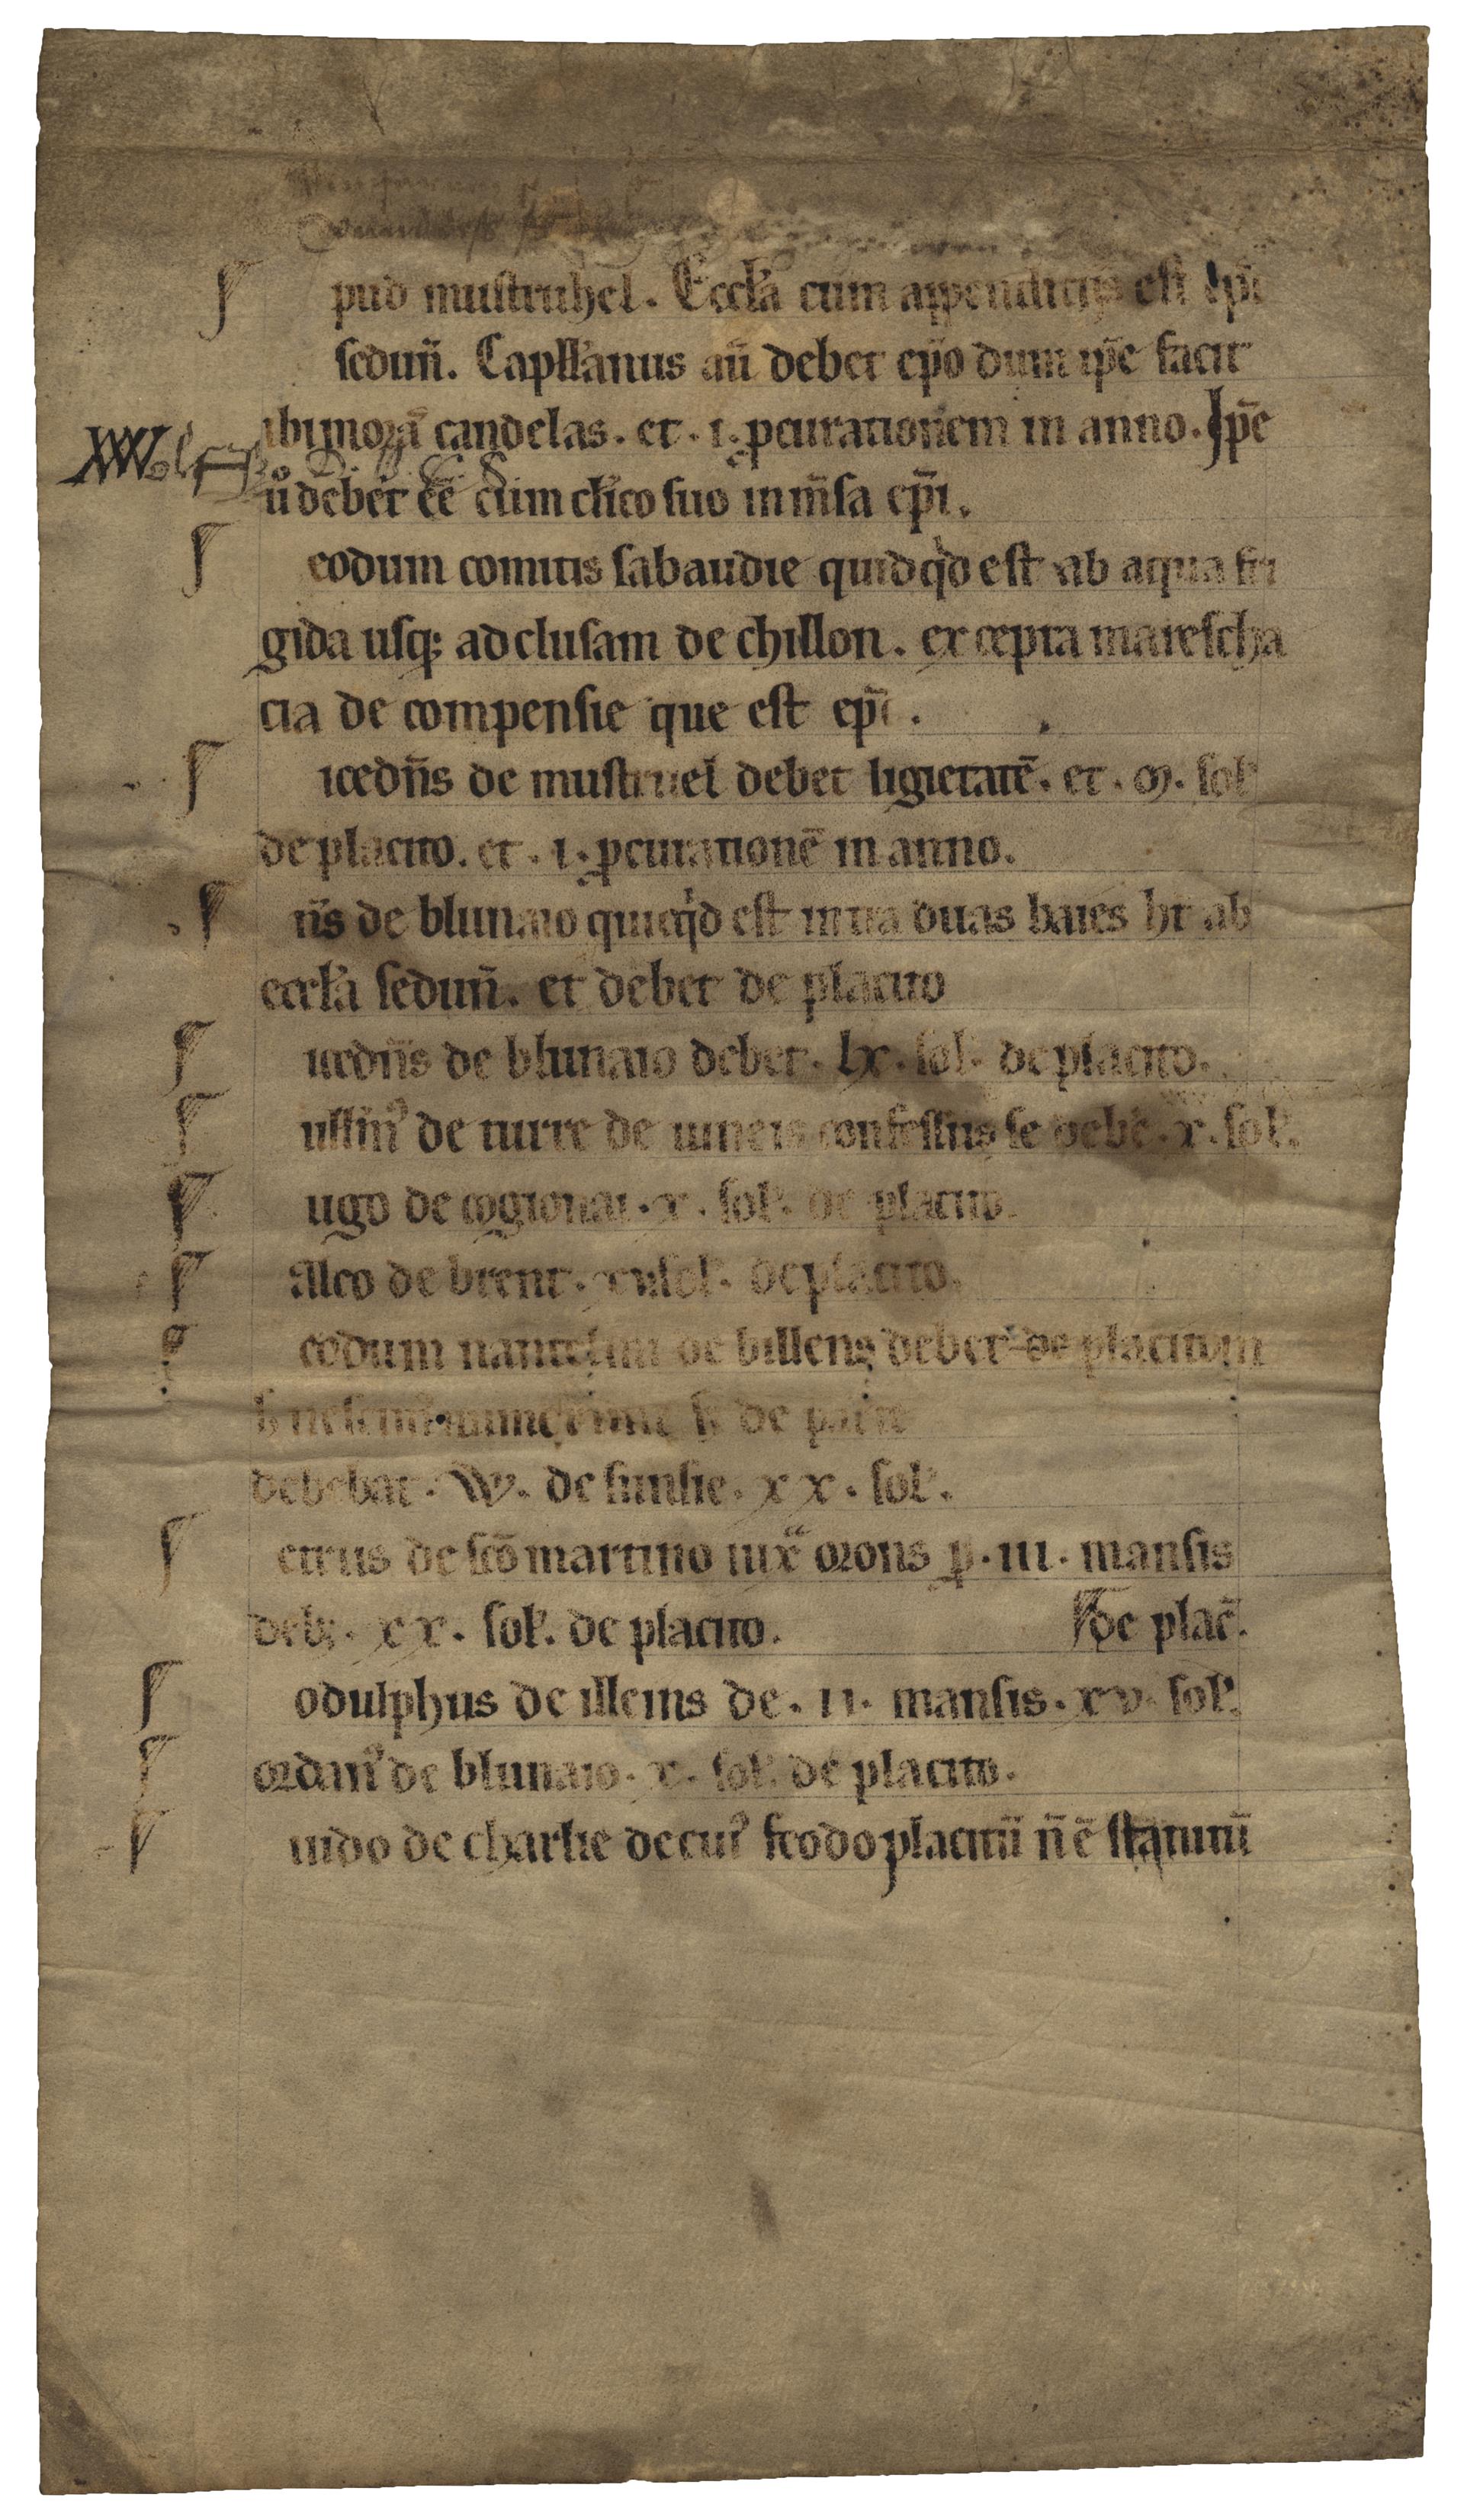 pud mustruhel. Eccl'a cum appendiciis est ep̄i
sedun̄. Capll'anus aū debet ep̄o dum ip̄e facit
ibi morā candelas. et. i. ꝓcurationem in anno. Ip̄e
ůo debet eē cum cl'ico suo in m̄sa ep̄i.
eodum comitis sabaudie quidqͥd est ab aqua fri
gida usq; ad clusam de chillon. excepta marescha
cia de compensie que est ep̄i.
icedn̄s de mustruel debet ligietatē. et. m. sol'
de placito. et. i. ꝓcurationē in anno.
n̄s de blunaio quicqͥd est intra duas baies ht ab
eccl'a sedun̄. et debet de placito
icedn̄s de blunaio debet. lx. sol'. de placito.
ull'mꝰ de turre de uiueis confessus se debē. x. sol'.
ugo de cogionai. x. sol'. de placito.
alco de brent. xv sol'. de placito.
eodum nantelini de billens debet de placitum
de patre
debebat. W. de sunsie. xx. sol'.
etrus de sc̄o martino iuxᵃ orons ꝓ. iii. mansis
deb;. xx. sol'. de placito. de plac̄.
odulphus de illeins de. ii. mansis. xv. sol'.
ordanꝰ de blunaio. x. sol'. de placito.
uido de charlie de cuiꝰ feodo placitū n̄ ē statutū